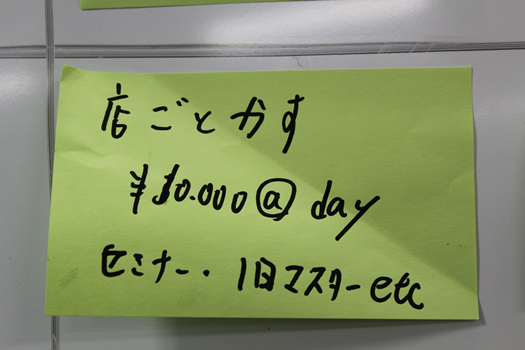 店ごとかす
¥10.000@day
セミナー.1日マスターetc